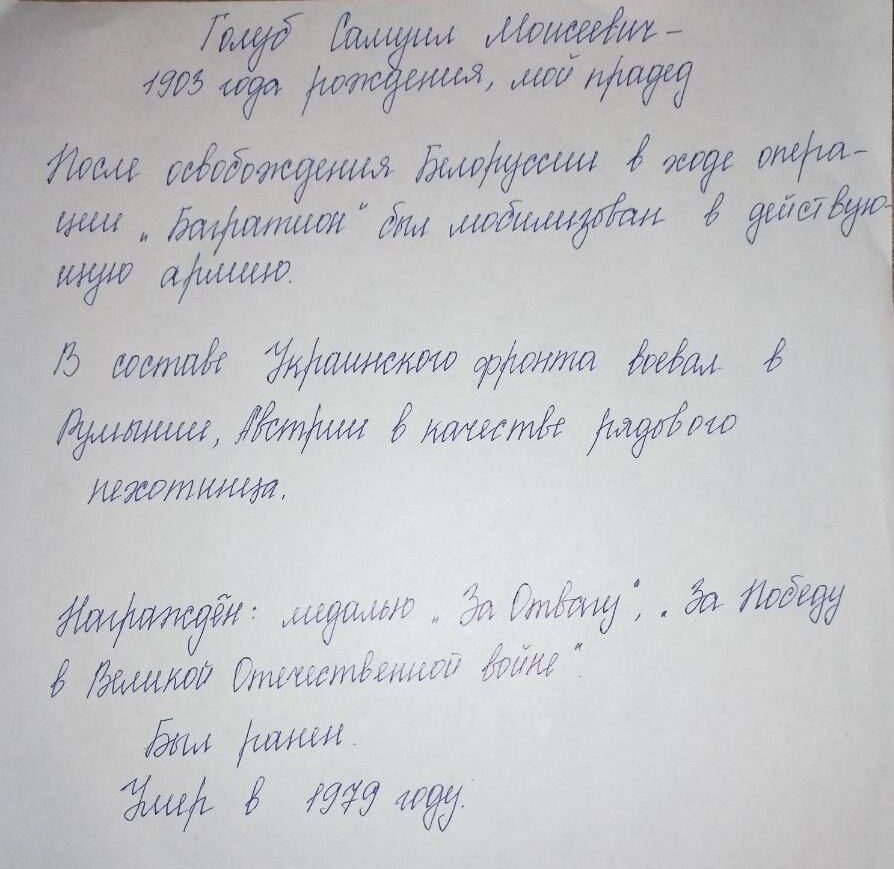 Голуб Самуил Моисеевич –
1903 года рождения, мой прадед
После освобождения Белоруссии в ходе опера-
ции „Багратион“ был мобилизован в действую-
щую армию.
В составе Украинского фронта воевал в
Румынии, Австрии в качестве рядового
пехотинца.
Награждён: медалью „За Отвагу“, „За Победу
в Великой Отечественной войне“.
Был ранен.
Умер в 1979 году.